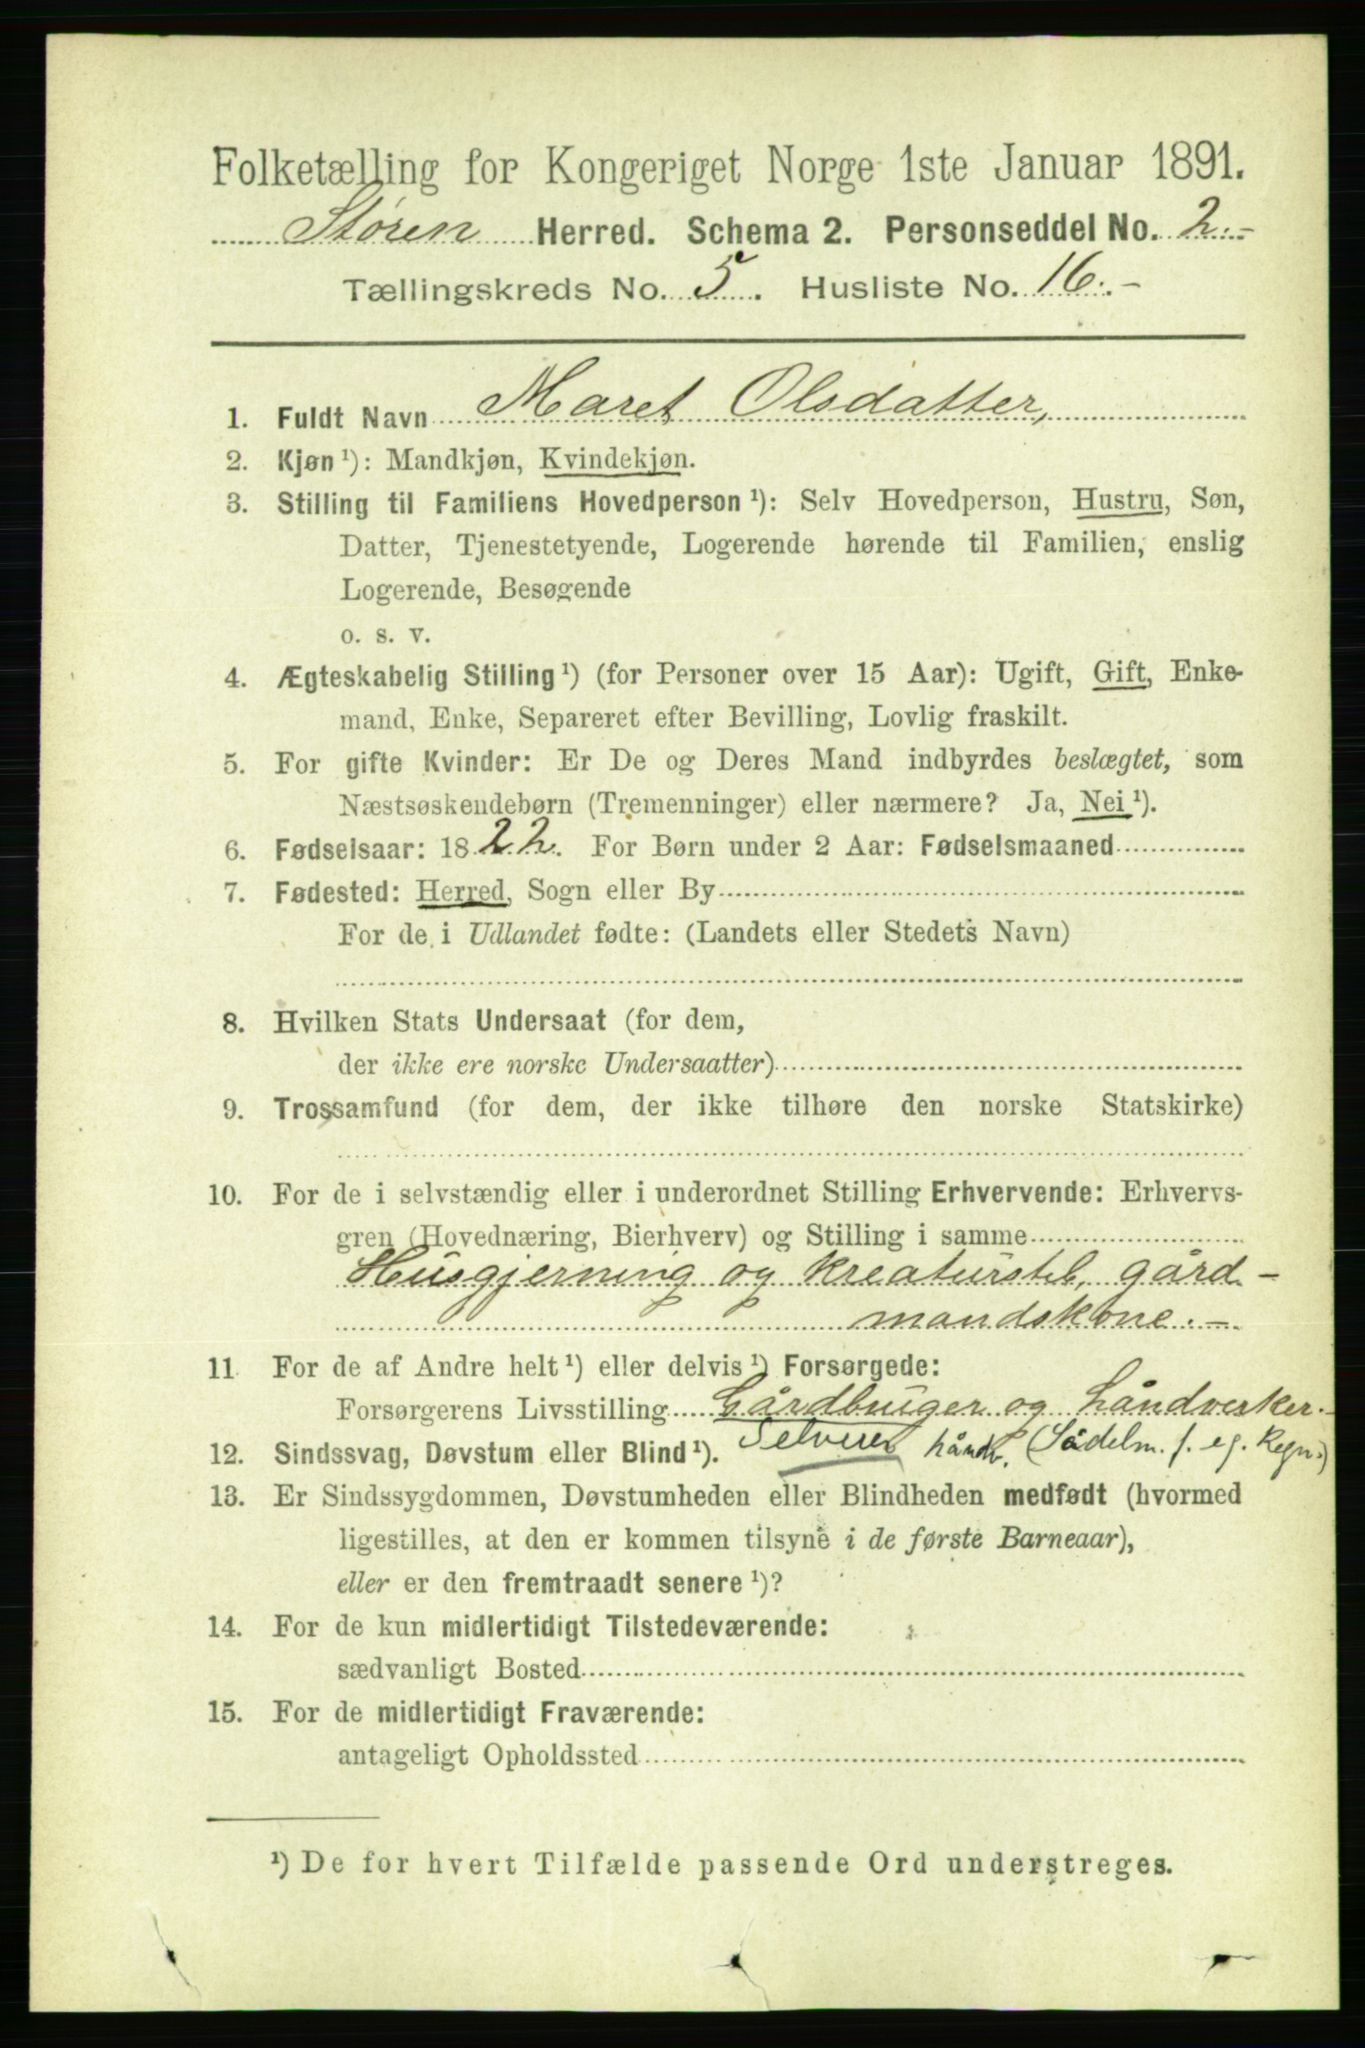 Folketælling for Kongeriget Norge 1ste Januar 1891.
Støren Herred. Schema 2. Personseddel No. 2.-
Tællingskreds No. 5. Husliste No. 16.-
1. Fuldt Navn Maret Olsdatter,
2. Kjøn ¹): Mandkjøn, Kvindekjøn.
3. Stilling til Familiens Hovedperson ¹): Selv Hovedperson, Hustru, Søn,
Datter, Tjenestetyende, Logerende hørende til Familien, enslig
Logerende, Besøgende
o. s. v.
4. Ægteskabelig Stilling ¹) (for Personer over 15 Aar): Ugift, Gift, Enke-
mand, Enke, Separeret efter Bevilling, Lovlig fraskilt.
5. For gifte Kvinder: Er De og Deres Mand indbyrdes beslægtet, som
Næstsøskendebørn (Tremenninger) eller nærmere? Ja, Nei ¹).
6. Fødselsaar: 1822. For Børn under 2 Aar: Fødselsmaaned
7. Fødested: Herred, Sogn eller By
For de i Udlandet fødte: (Landets eller Stedets Navn)
8. Hvilken Stats Undersaat (for dem,
der ikke ere norske Undersaatter)
9. Trossamfund (for dem, der ikke tilhøre den norske Statskirke)
10. For de i selvstændig eller i underordnet Stilling Erhvervende: Erhvervs-
gren (Hovednæring, Bierhverv) og Stilling i samme
Husgjerning og kreaturstel, gård-
mandskone.-
11 For de af Andre helt ¹) eller delvis ¹) Forsørgede:
Forsørgerens Livsstilling Gårdbruger og håndverker.-
12. Sindssvag, Døvstum eller Blind ¹). Selveier håndv. (Sadelm. f. eg. Regn.)
13. Er Sindssygdommen, Døvstumheden eller Blindheden medfødt (hvormed
ligestilles, at den er kommen tilsyne i de første Barneaar),
eller er den fremtraadt senere ¹)?
14. For de kun midlertidigt Tilstedeværende:
sædvanligt Bosted
15. For de midlertidigt Fraværende:
antageligt Opholdssted
¹) De for hvert Tilfælde passende Ord understreges.